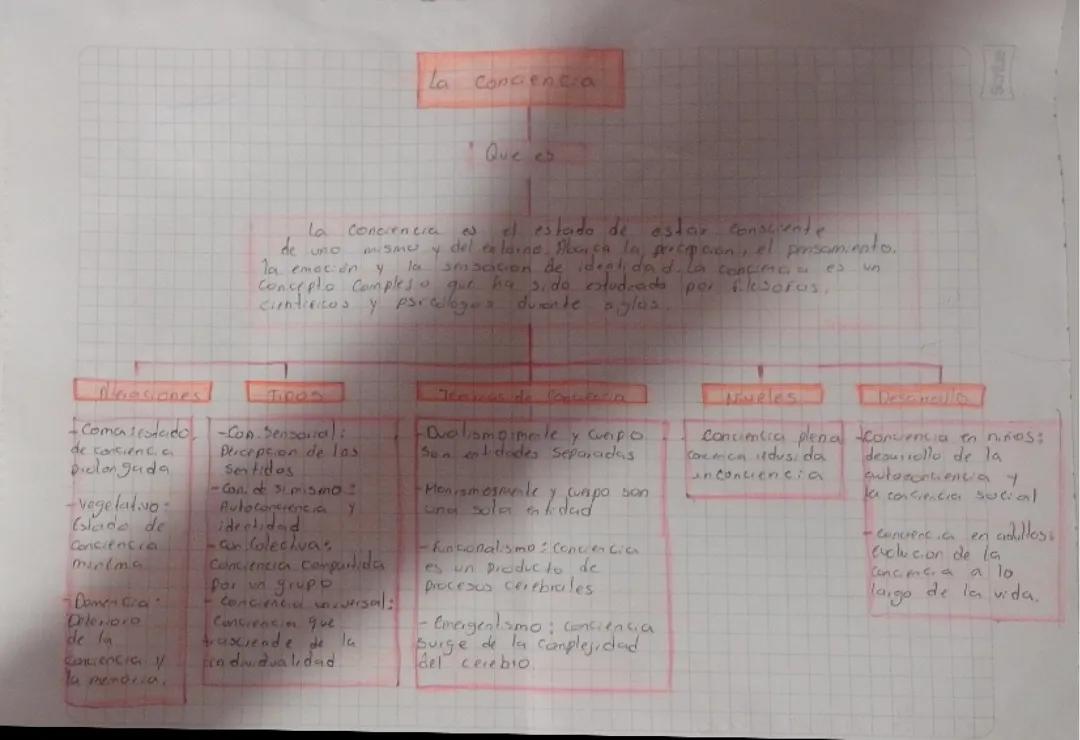 La conciencia
Que es
La conciencia es el estado de estar consciente
de uno mismo y del entorno. Abarca la percepcion, el pensamiento.
la emoción y la sensacion de identidad. La conciencia es un
concepto complejo que ha sido estudiado por filosofos,
cientificos y psicologos durante siglos.
Alteraciones
-Coma: estado
de conciencia
prolongada
-Vegetativo:
Estado de
conciencia
minima
-Demencia:
Deterioro
de la
conciencia y
la memoria.
Tipos
-Con. Sensorial:
Percepcion de los
sentidos
-Con. de si mismo:
Autoconciencia y
identidad
-Con. Colectiva:
Conciencia compartida
por un grupo
-Conciencia universal:
Conciencia que
trasciende de la
individualidad
Teorias de Conciencia
-Dualismo: mente y cuerpo
son entidades separadas
-Monismo: mente y cuerpo son
una sola entidad
-Funcionalismo: Conciencia
es un producto de
procesos cerebrales
-Emergentismo: conciencia
surge de la complejidad
del cerebro.
Niveles
conciencia plena
inconciencia
Desarrollo
-Conciencia en niños:
desarrollo de la
autoconciencia y
la conciencia social
-conciencia en adultos:
Evolucion de la
conciencia a lo
largo de la vida.
Scribe